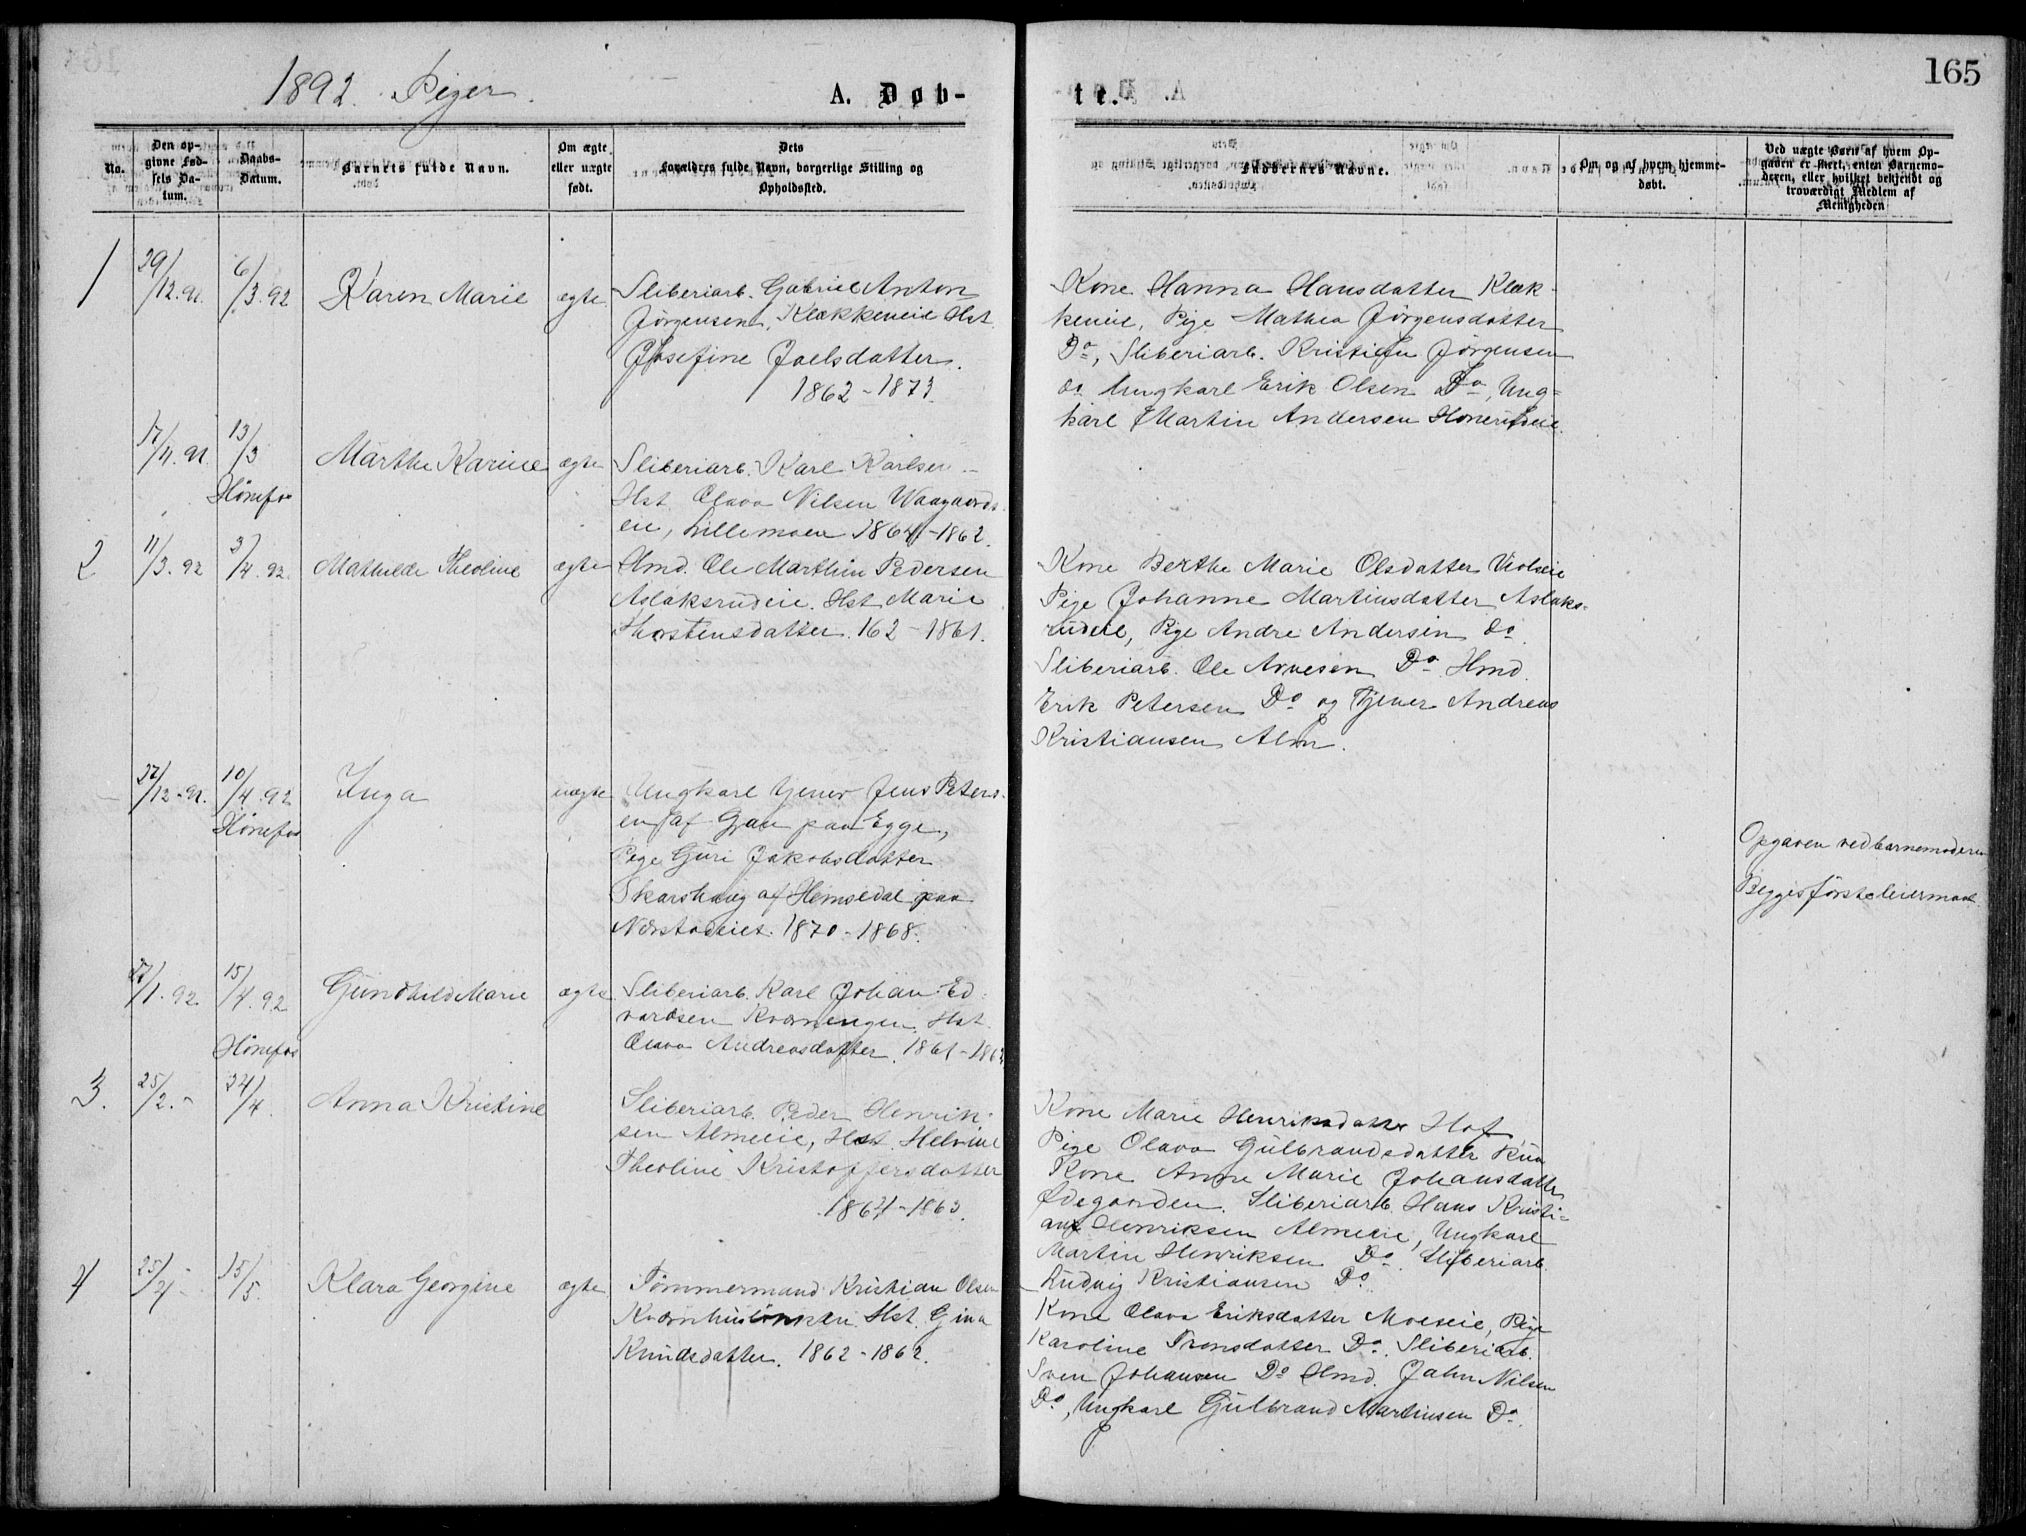 165
1892. Piger.
A. Døb-
te.
No.
Den op-
givne Fød-
sels Da-
tum.
Daabs-
Datum.
Barnets fulde Navn.
Om ægte
eller uægte
født.
Dets
Forældres fulde Navn, borgerlige Stilling og
Opholdssted.
Faddernes Navne.
Om og af hvem hjemme-
døbt.
Ved uægte Børn af hvem Op-
gaven er skeet, enten Barnemo-
deren, eller hvilket bekjendt og
troværdigt Medlem af
Menigheden
1
29/12.91.
6/3.92
Karen Marie
ægte
Sliberiarb. Gabriel Anton
Jørgensen, Klækkeneie Hst
Josefine Joelsdatter.
1862-1873
Kone Hanna Hansdatter Klæk-
keneie, Pige Mathea Jørgensdatter
Do, Sliberiarb. Kristian Jørgensen
do Ungkarl Erik Olsen Do, Ung-
karl Martin Andersen Honerudeie.
17/4.91.
13/3
Hønefos
Marthe Karine
ægte
Sliberiarb. Karl Karlsen
Hst Olava Nilsen Waagaards-
eie, Lillemoen 1864-1862.
2
11/3.92
3/4.92.
Mathilde Theoline
ægte
Hmd. Ole Marthin Pedersen
Aslaksrudeie. Hst Marie
Thorstensdatter. 162-1861.
Kone Berthe Marie Olsdatter
Pige Johanne Martinsdatter Aslaks-
rudeie, Pige Andre Andersen do
Sliberiarb. Ole Arnesen Do Hmd.
Erik Petersen Do og Tjener Andreas
Kristiansen Alm.
27/12-91.
10/4.92
Hønefos
Inga
uægte
Ungkarl tjener Jens Peters-
en af Gran paa Egge,
Pige Guri Jakobsdatter
Skarshaug af Hemsedal paa
1870-1868.
Opgaven ved barnemoderen
Begges første leiermaal.
27/1.92.
15/4.92
Hønefos
Gundhild Marie
ægte
Sliberiarb. Karl Johan Ed-
vardsen Kværnengen. Hst.
Olava Andreasdatter. 1861-
3.
25/2.-
24/4.
Anna Kristine
Sliberiarb. Peder Henrik-
sen Almeeie, Hst. Helvine
Theoline Kristoffersdatter
1864-1863.
Kone Marie Henriksdatter Hof
Pige Olava Gulbrandsdatter
Kone Anne Marie Johansdatter
Ødegaarden. Sliberiarb. Hans Kristi-
an Henriksen Almeeie, Ungkarl
Martin Henriksen Do. Sliberiarb.
Ludvig Kristiansen Do
4
25/4-
15/5.
Klara Georgine
ægte
Tømmermand Kristian Olsen
Hst. Gina
Knudsdatter. 1862-1862.
Kone Olava Eriksdatter Moeseie, Pige
Karoline Tronsdatter Do. Sliberiarb.
Sven Johansen Do Hmd. Jahn Nilsen
Do, Ungkarl Gulbrand Martinsen Do.